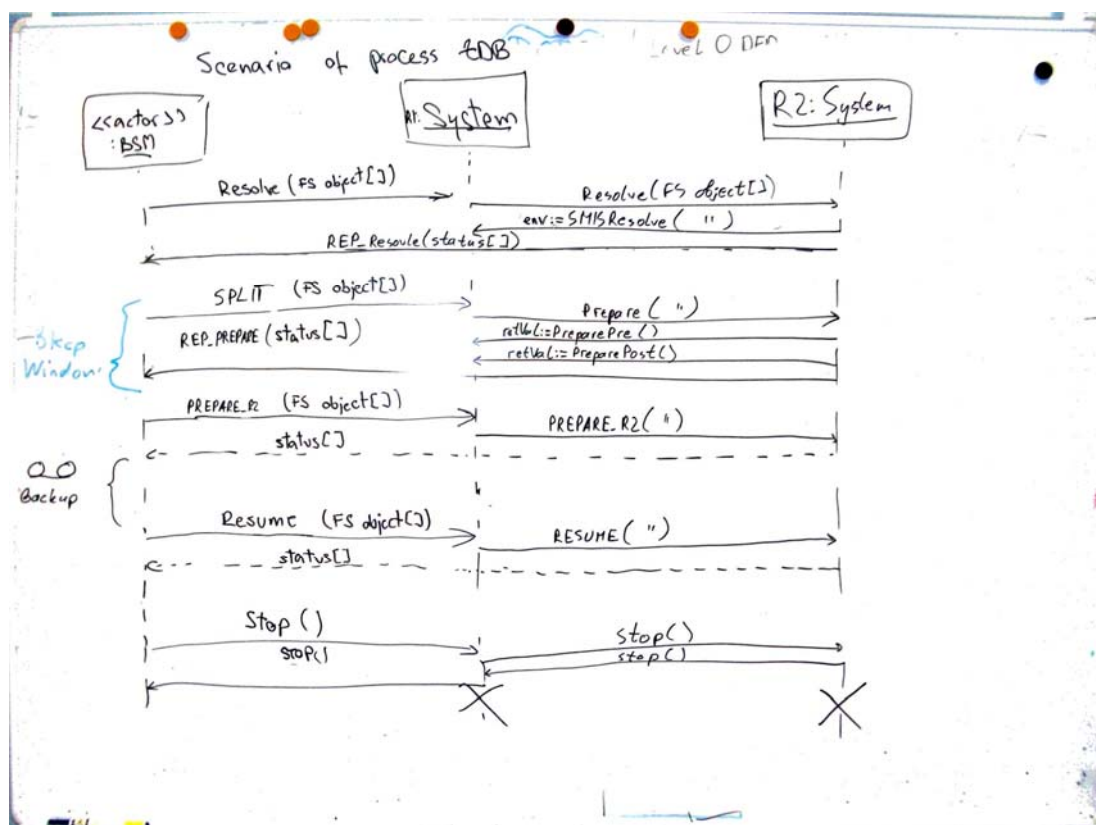 Scenario of process tDB
Level 0 DFD
<<actor>>
:BSM
R1: System
R2: System
Resolve (FS object[])
Resolve (FS object[])
env:= SMISResolve ( " )
REP_Resovle (status[])
SPLIT (FS object[])
Prepare ( " )
REP_PREPARE (status[])
retVal:= PreparePre ()
retVal:= PreparePost ()
Window
PREPARE_R2 (FS object[])
PREPARE_R2 ( " )
status[]
Backup
Resume (FS object[])
RESUME ( " )
status[]
Stop ()
stop()
STOP()
stop()